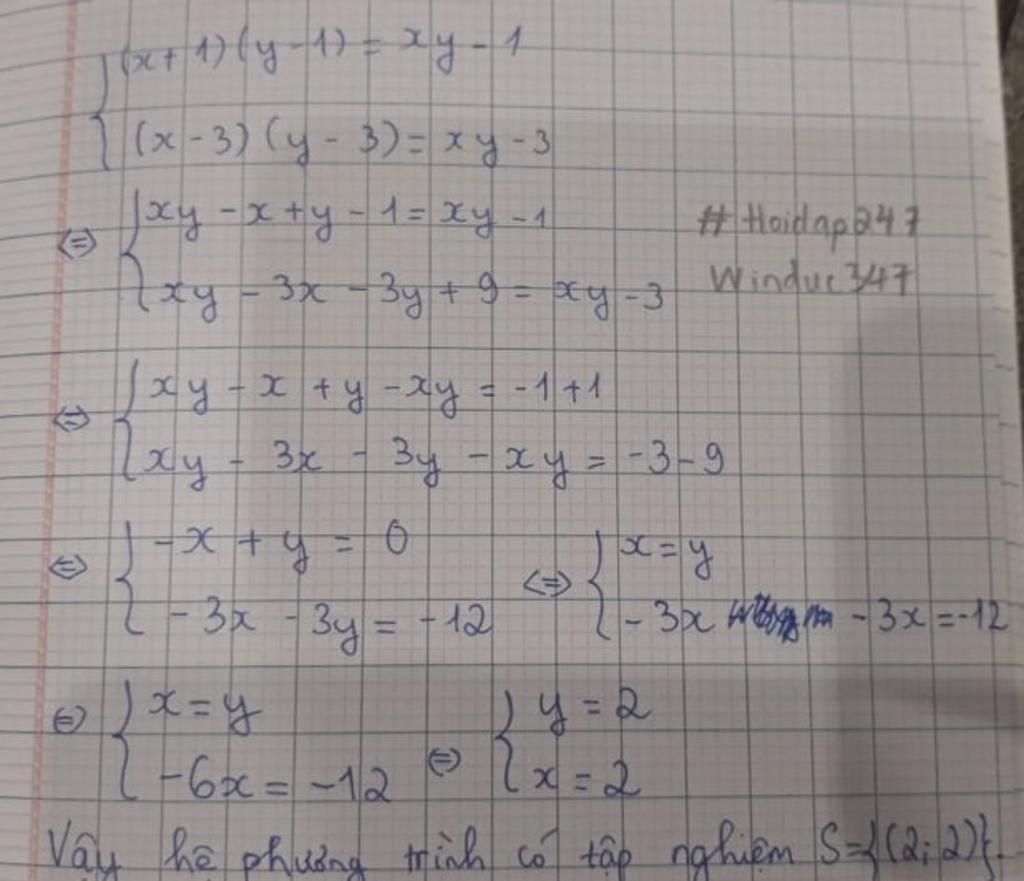 (x+1)(y-1) = xy - 1
(x-3)(y-3) = xy - 3
⇔ xy - x + y - 1 = xy - 1
xy - 3x - 3y + 9 = xy - 3
#Hoidap247
Winduc347
⇔ xy - x + y - xy = -1 + 1
xy - 3x - 3y - xy = -3 - 9
⇔ { -x + y = 0
-3x - 3y = -12
⇔ { x = y
-3x - 3x = -12
⇔ { x = y
-6x = -12
⇔ { y = 2
x = 2
Vậy hệ phương trình có tập nghiệm S={(2;2)}.